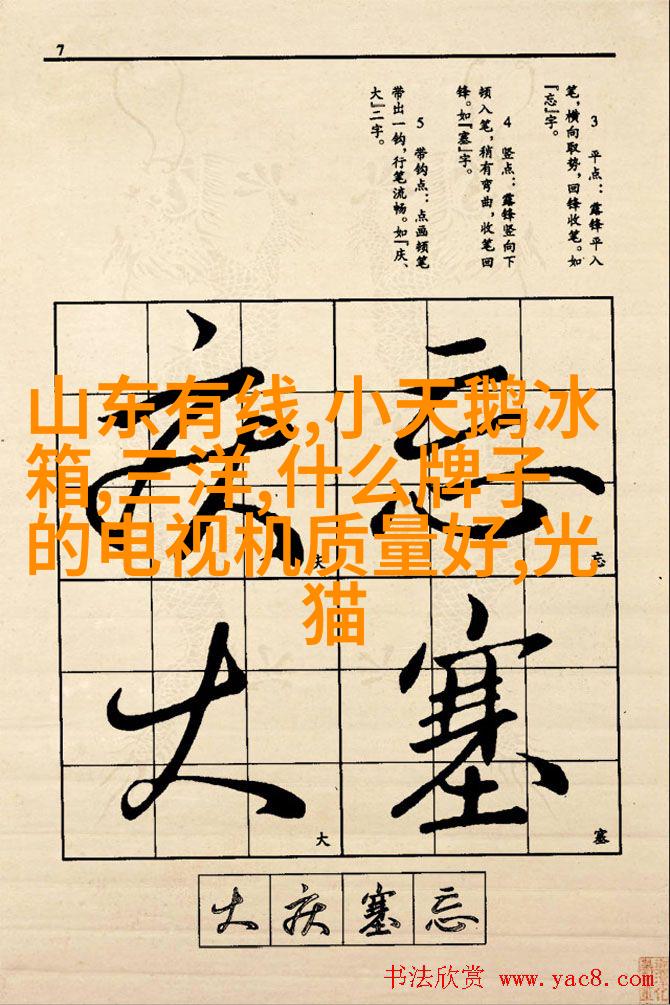 7
3 平点：露锋平入
笔，横向取势，回锋收笔。如
『忘』字。
4 竖点：露锋竖向下
顿入笔，稍有弯曲，收笔回
锋。如『塞』字。
5 带钩点：点画顿笔
带出一钩，行笔流畅。如『庆、
大』二字。
山东有线,小天鹅冰
箱,三洋,什么牌子
的电视机质量好,光
猫
庆 忘
庆 忘
大 塞
大 塞
大 庆 塞 忘
书法欣赏 www.yac8.com